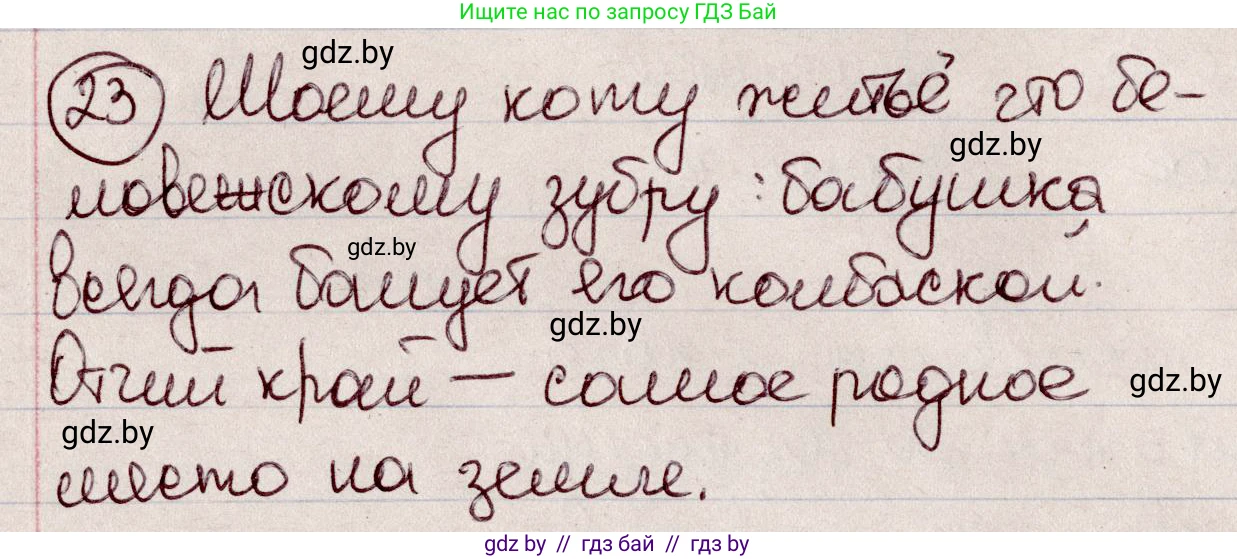 Ищите нас по запросу ГДЗ Бай
gdz.by
23 Моему коту житьё что бе-
gdz.by
ловежскому зубру: бабушка
gdz.by
всегда балует его колбаской.
gdz.by
Отчий край — самое родное
gdz.by
gdz.by
место на земле.
gdz by // гдз бай // гдз by